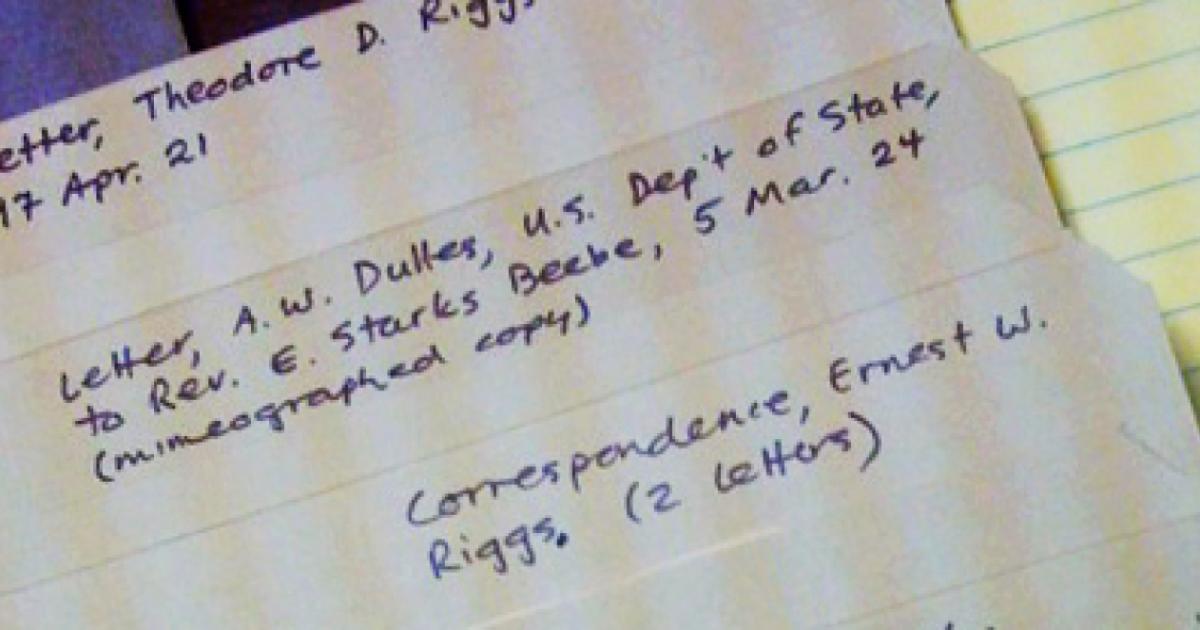 etter, Theodore D. Riggs
17 Apr. 21
Letter, A.W. Dulles, U.S. Dep't of State,
to Rev. E. Starks Beebe, 5 Mar. 24
(mimeographed copy)
Correspondence, Ernest W.
Riggs. (2 letters)